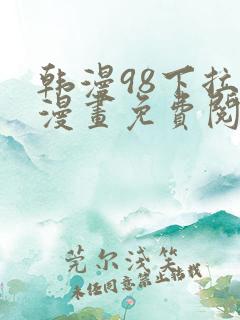 韩漫98下拉
漫畫免費閱
莞尔浅笑
未经同意禁止转载